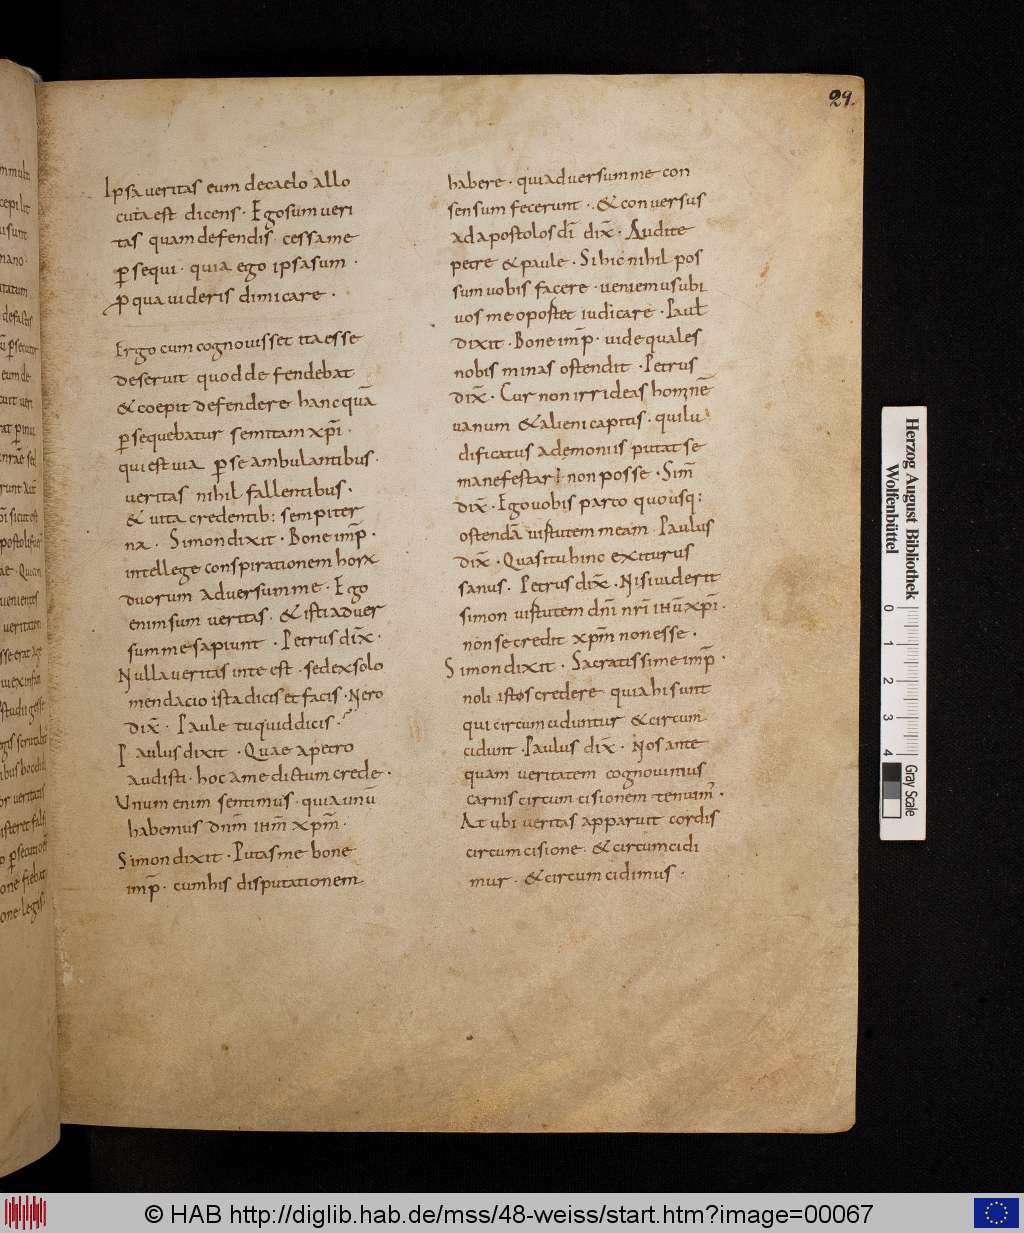 29.
Ipsa veritas eum decaelo allo
cuta est dicens · Ego sum veri
tas quam defendis · cessa me
p̱sequi · quia ego ipsa sum ·
ꝓ qua uideris dimicare ·
Ergo cum cognouisset ita esse
deseruit quod defendebat
& coepit defendere hanc quā
p̱sequebatur semitam xp̄i ·
qui est uia p̱ se ambulantibus ·
veritas nihil fallentibus ·
& uita credentib: sempiter
na · Simon dixit · Bone imp̄ ·
intellege conspirationem horx
duorum aduersum me · Ego
enim sum veritas · & isti aduer
sum me sapiunt · Petrus dix̄ ·
Nulla veritas in te est · sed ex solo
mendacio ista dicis et facis · Nero
dix̄ · Paule tu quid dicis ·
Paulus dixit · Quae a petro
audisti · hoc a me dictum crede ·
Unum enim sentimus · quia unū
habemus dnm̄ ihm̄ xpm̄ ·
Simon dixit · Putas me bone
imp̄ · cum his disputationem
habere · qui aduersum me con
sensum fecerunt · & conuersus
ad apostolos dī dix̄ · Audite
petre & paule · Si hic nihil pos
sum uobis facere · ueniemus ubi
uos me oportet iudicare · Paul̄
dixit · Bone imp̄ · uide quales
nobis minas ostendit · Petrus
dix̄ · Cur non irrideas homnē
vanum & alieni capitis · qui lu
dificatus a demoniis putat se
manefestari non posse · Sim̄
dix̄ · Ego uobis parco quousq:
ostendā uirtutem meam · Paulus
dix̄ · Quasi tu hinc exiturus
sanus · Petrus dix̄ · Nisi uiderit
simon uirtutem dnī nrī ihū xpī ·
non se credit xpm̄ non esse ·
Simon dixit · Sacratissime imp̄ ·
noli istos credere quia hi sunt
qui circumciduntur & circum
cidunt · Paulus dix̄ · Nos ante
quam veritatem cognouimus
carnis circumcisionem tenuim̄ ·
At ubi veritas apparuit cordis
circumcisione · & circumcidi
mur · & circumcidimus ·
Herzog August Bibliothek
Wolfenbüttel
0 1 2 3 4
Gray Scale
© HAB http://diglib.hab.de/mss/48-weiss/start.htm?image=00067